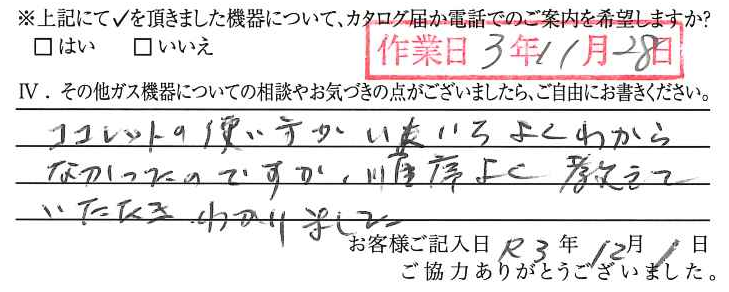 ※上記にて✓を頂きました機器について、カタログ届か電話でのご案内を希望しますか?
□はい □いいえ
作業日 3年11月28日
Ⅳ．その他ガス機器についての相談やお気づきの点がございましたら、ご自由にお書きください。
ココレットの使い方がいまいちよくわから
なかったのですが、順序よく教えて
いただきわかりました
お客様ご記入日 R3年12月1日
ご協力ありがとうございました。